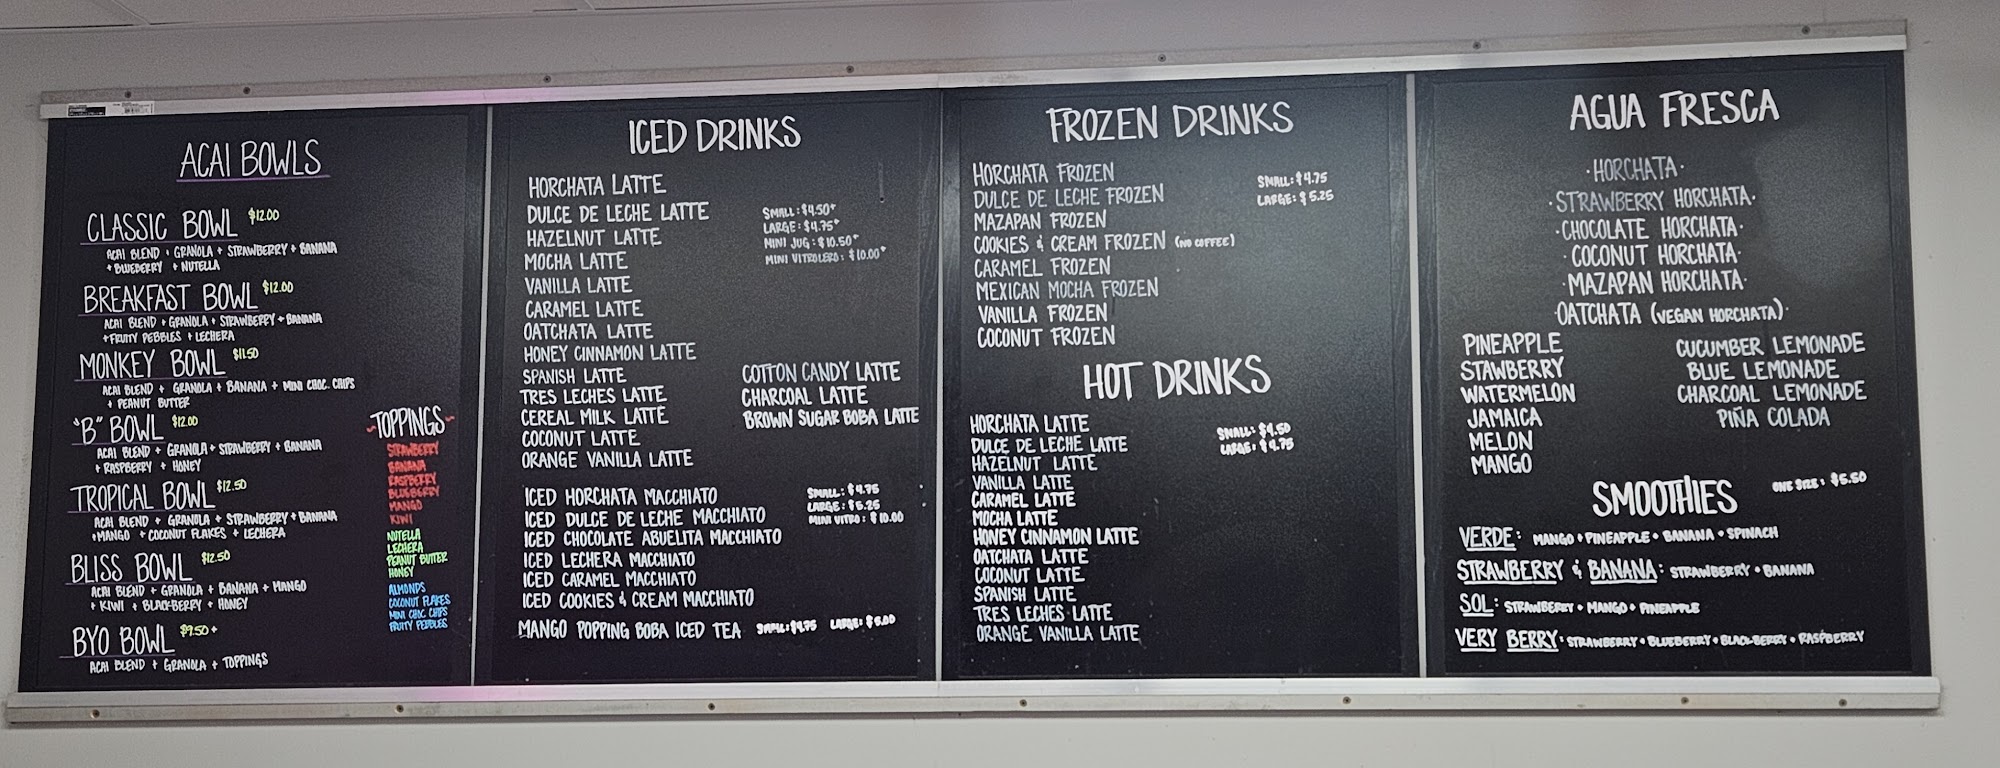 ACAI BOWLS
CLASSIC BOWL $12.00
ACAI BLEND + GRANOLA + STRAWBERRY + BANANA
+ BLUEBERRY + NUTELLA
BREAKFAST BOWL $12.00
ACAI BLEND + GRANOLA + STRAWBERRY + BANANA
+ FRUITY PEBBLES + LECHERA
MONKEY BOWL $11.50
ACAI BLEND + GRANOLA + BANANA + MINI CHOC. CHIPS
+ PEANUT BUTTER
"B" BOWL $12.00
ACAI BLEND + GRANOLA + STRAWBERRY + BANANA
+ RASPBERRY + HONEY
TROPICAL BOWL $12.50
ACAI BLEND + GRANOLA + STRAWBERRY + BANANA
+ MANGO + COCONUT FLAKES + LECHERA
BLISS BOWL $12.50
ACAI BLEND + GRANOLA + BANANA + MANGO
+ KIWI + BLACKBERRY + HONEY
BYO BOWL $9.50+
ACAI BLEND + GRANOLA + TOPPINGS
~TOPPINGS~
STRAWBERRY
BANANA
RASPBERRY
BLUEBERRY
MANGO
KIWI
NUTELLA
LECHERA
PEANUT BUTTER
HONEY
ALMONDS
COCONUT FLAKES
MINI CHOC CHIPS
FRUITY PEBBLES
ICED DRINKS
HORCHATA LATTE
DULCE DE LECHE LATTE
HAZELNUT LATTE
MOCHA LATTE
VANILLA LATTE
CARAMEL LATTE
OATCHATA LATTE
HONEY CINNAMON LATTE
SPANISH LATTE
TRES LECHES LATTE
CEREAL MILK LATTE
COCONUT LATTE
ORANGE VANILLA LATTE
SMALL: $4.50*
LARGE: $4.75*
MINI JUG: $10.50*
MINI VITROLERO: $10.00*
COTTON CANDY LATTE
CHARCOAL LATTE
BROWN SUGAR BOBA LATTE
ICED HORCHATA MACCHIATO
ICED DULCE DE LECHE MACCHIATO
ICED CHOCOLATE ABUELITA MACCHIATO
ICED LECHERA MACCHIATO
ICED CARAMEL MACCHIATO
ICED COOKIES & CREAM MACCHIATO
SMALL: $4.75
LARGE: $5.25
MINI VITRO: $10.00
MANGO POPPING BOBA ICED TEA SMALL: $4.75 LARGE: $5.00
FROZEN DRINKS
HORCHATA FROZEN
DULCE DE LECHE FROZEN
MAZAPAN FROZEN
COOKIES & CREAM FROZEN (NO COFFEE)
CARAMEL FROZEN
MEXICAN MOCHA FROZEN
VANILLA FROZEN
COCONUT FROZEN
SMALL: $4.75
LARGE: $5.25
HOT DRINKS
HORCHATA LATTE
DULCE DE LECHE LATTE
HAZELNUT LATTE
VANILLA LATTE
CARAMEL LATTE
MOCHA LATTE
HONEY CINNAMON LATTE
OATCHATA LATTE
COCONUT LATTE
SPANISH LATTE
TRES LECHES LATTE
ORANGE VANILLA LATTE
SMALL: $4.50
LARGE: $4.75
AGUA FRESCA
·HORCHATA·
·STRAWBERRY HORCHATA·
·CHOCOLATE HORCHATA·
·COCONUT HORCHATA·
·MAZAPAN HORCHATA·
·OATCHATA (VEGAN HORCHATA)·
PINEAPPLE
STAWBERRY
WATERMELON
JAMAICA
MELON
MANGO
CUCUMBER LEMONADE
BLUE LEMONADE
CHARCOAL LEMONADE
PIÑA COLADA
SMOOTHIES ONE SIZE: $5.50
VERDE: MANGO • PINEAPPLE • BANANA • SPINACH
STRAWBERRY & BANANA: STRAWBERRY • BANANA
SOL: STRAWBERRY • MANGO • PINEAPPLE
VERY BERRY: STRAWBERRY • BLUEBERRY • BLACKBERRY • RASPBERRY